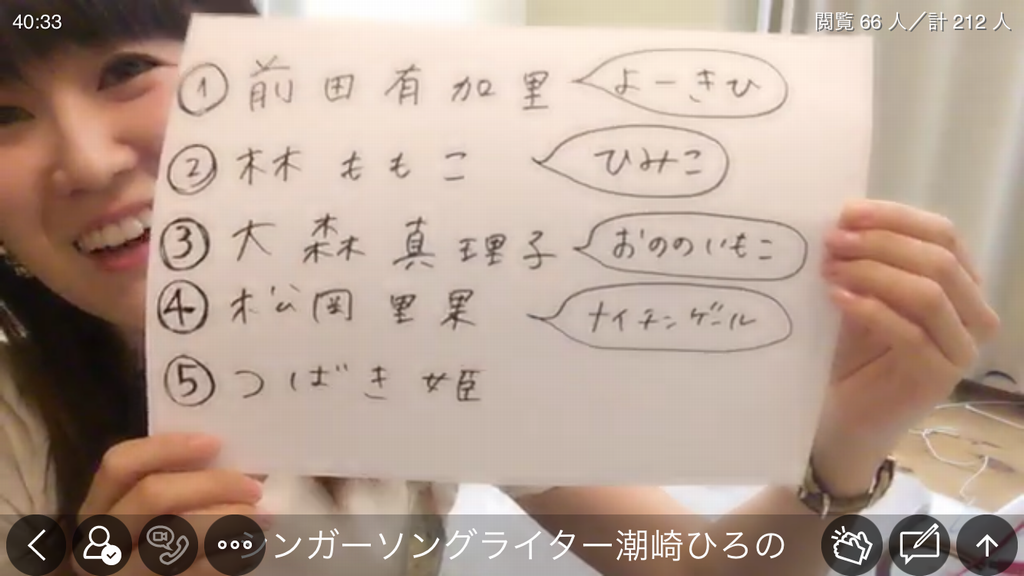 40:33
閲覧 66 人／計 212 人
① 前田有加里 よーきひ
② 林ももこ ひみこ
③ 大森真理子 おののいもこ
④ 松岡里果 ナイチンゲール
⑤ つばき姫
ンガーソングライター潮崎ひろの